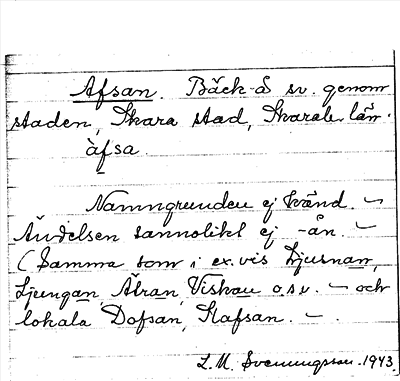 Afsan. Bäck-å sv. genom
staden, Skara stad, Skarab. län.
àfsa
Namngrunden ej känd. ~
Ändelsen sannolikt ej -ån. ~
(Samma som i ex.vis Ljusnan,
Ljungan, Ätran, Viskan o.s.v. ~ och
lokala Dofsan, Flafsan. ~ .
L.M. Svenungsson. 1943.